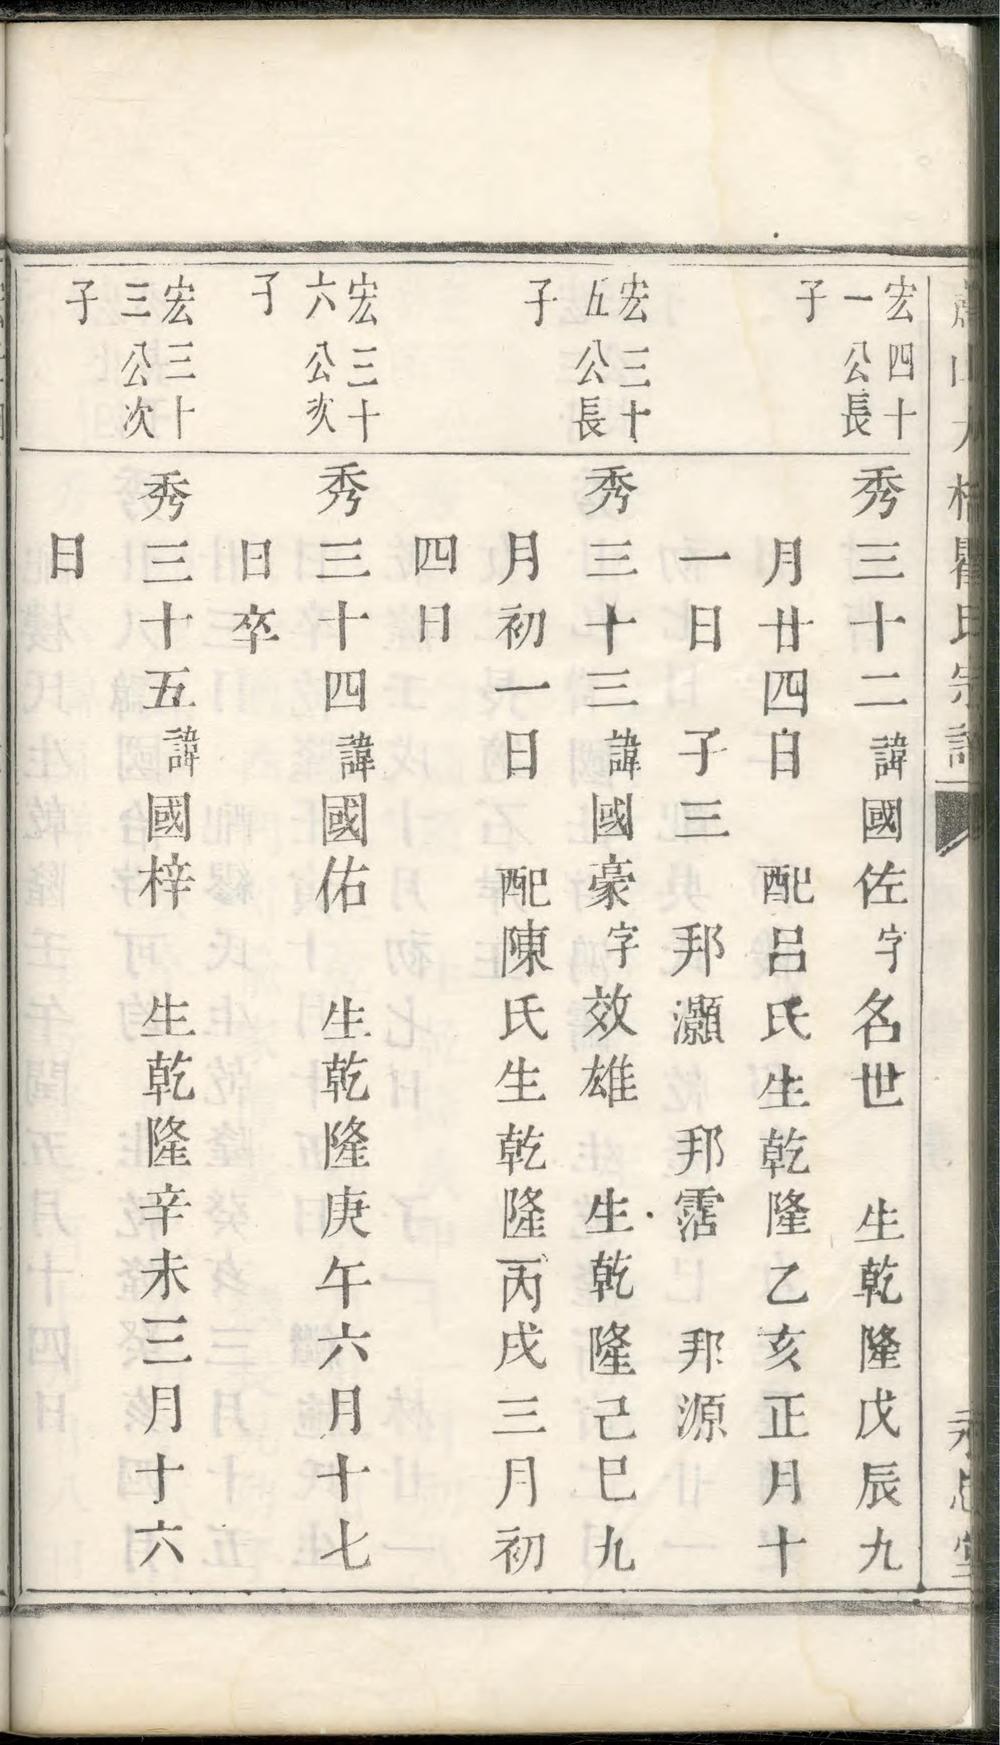 蕭山大橋瞿氏宗譜
永思堂
宏四十
一公長
子
秀三十二諱國佐字名世 生乾隆戊辰九
月廿四日 配呂氏生乾隆乙亥正月十
一日 子三 邦灝 邦霑 邦源
宏三十
五公長
子
秀三十三諱國豪字效雄 生乾隆己巳九
月初一日 配陳氏生乾隆丙戌三月初
四日
宏三十
六公次
子
秀三十四諱國佑 生乾隆庚午六月十七
日卒
宏三十
三公次
子
秀三十五諱國梓 生乾隆辛未三月十六
日